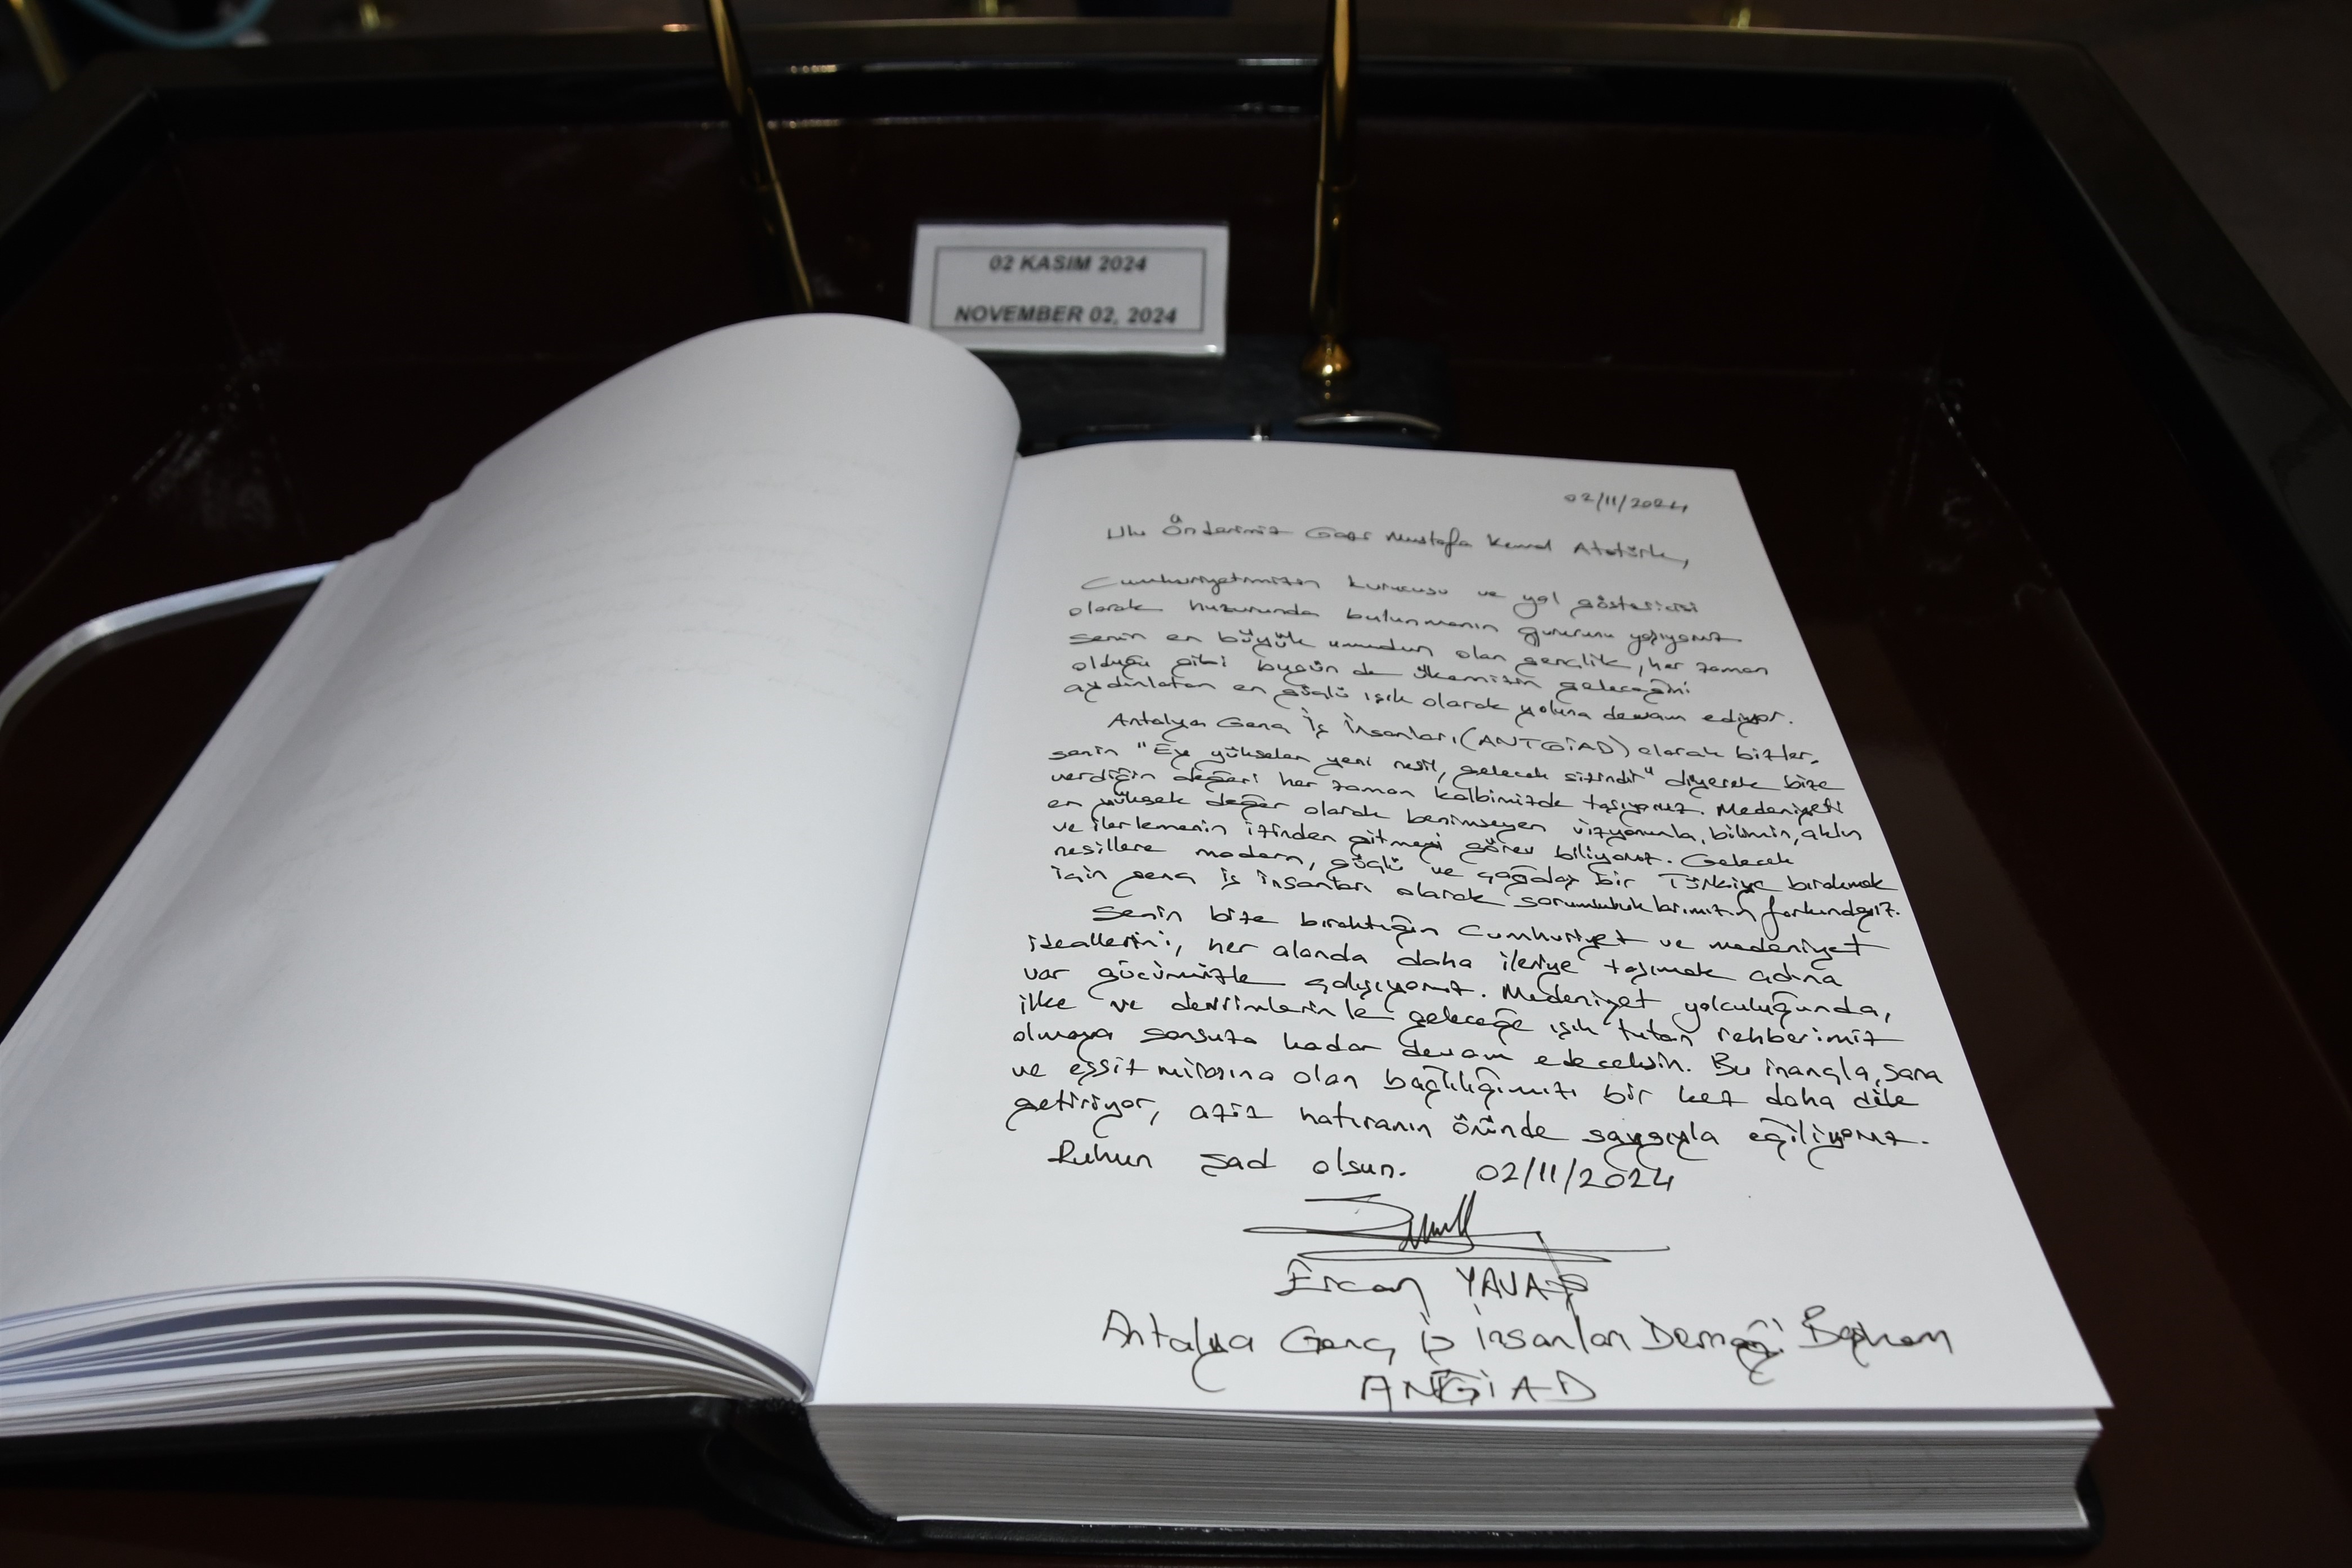 02 KASIM 2024
NOVEMBER 02, 2024
02/11/2024
Ulu Önderimiz Gazi Mustafa Kemal Atatürk,
Cumhuriyetimizin kurucusu ve yol göstericisi
olarak huzurunda bulunmanın gururunu yaşıyoruz
senin en büyük umudun olan gençlik, her zaman
olduğu gibi bugün de ülkemizin geleceğini
aydınlatan en güçlü ışık olarak yoluna devam ediyor.
Antalya Genç İş İnsanları (ANTGİAD) olarak bizler,
senin "Ey yükselen yeni nesil, gelecek sizindir" diyerek bize
verdiğin değeri her zaman kalbimizde taşıyoruz. Medeniyeti
en yüksek değer olarak benimseyen vizyonunla, bilimin, aklın
ve ilerlemenin izinden gitmeyi görev biliyoruz. Gelecek
nesillere modern, güçlü ve çağdaş bir Türkiye bırakmak
için genç iş insanları olarak sorumluluklarımızın farkındayız.
Senin bize bıraktığın Cumhuriyet ve medeniyet
ideallerini, her alanda daha ileriye taşımak adına
var gücümüzle çalışıyoruz. Medeniyet yolculuğunda,
ilke ve devrimlerinle geleceğe ışık tutan rehberimiz
olmaya sonsuza kadar devam edeceksin. Bu inançla, sana
ve eşsiz mirasına olan bağlılığımızı bir kez daha dile
getiriyor, aziz hatıranın önünde saygıyla eğiliyoruz.
Ruhun şad olsun. 02/11/2024
Ercan YAVAŞ
Antalya Genç İş İnsanları Derneği Başkanı
ANGİAD